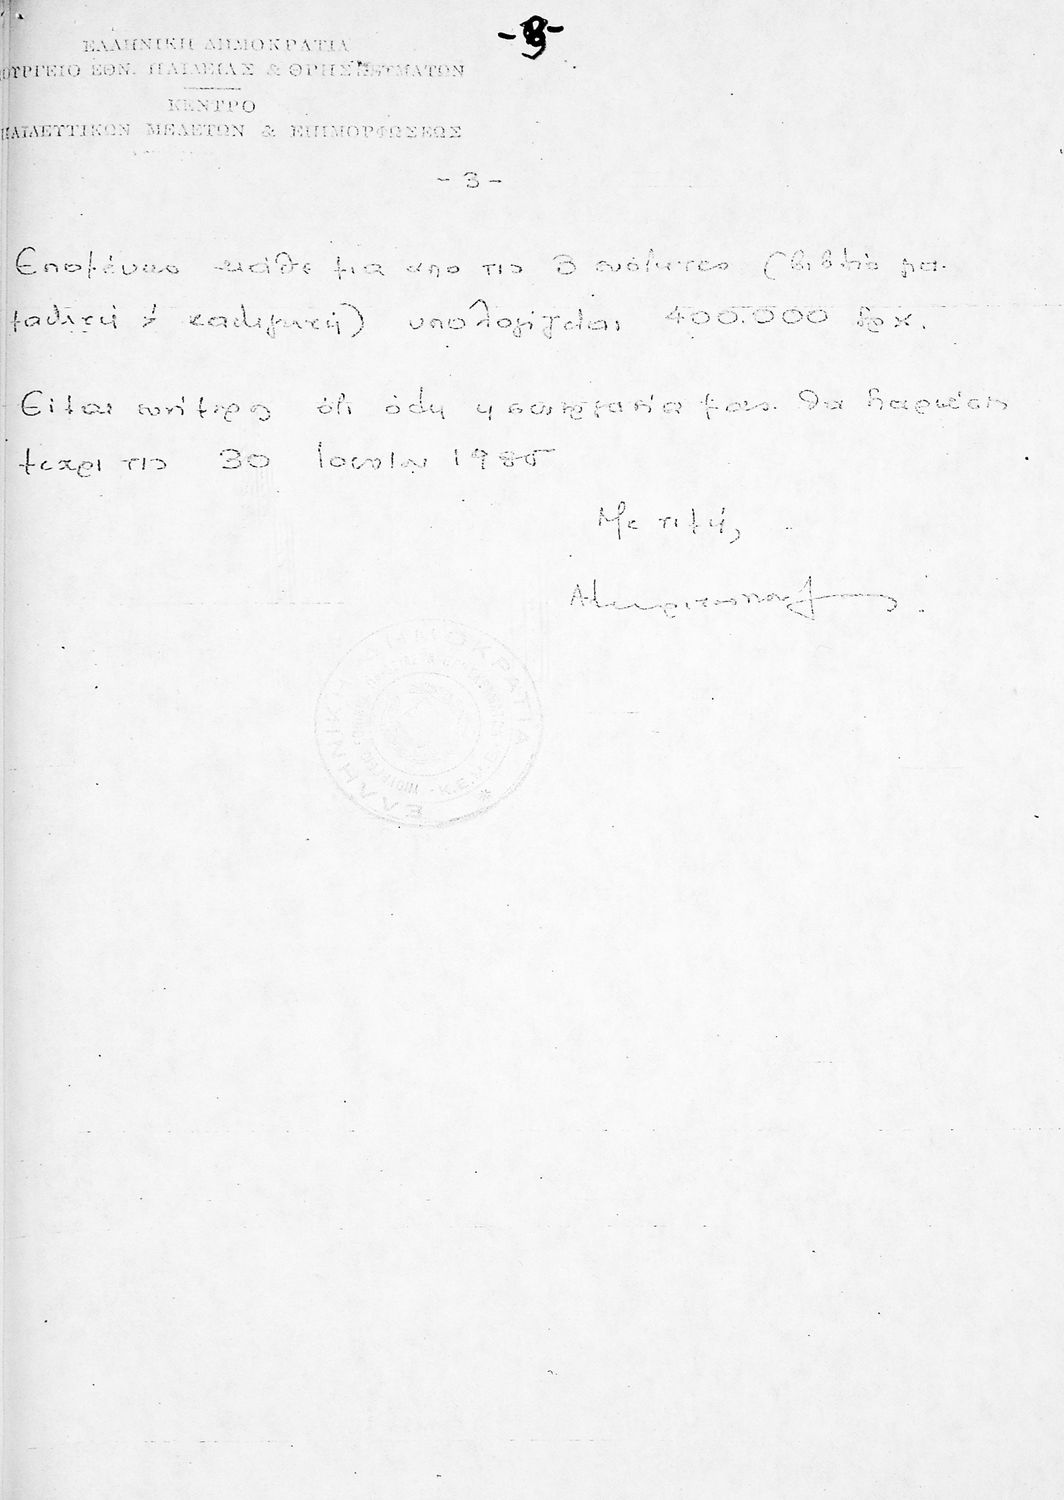 -9-
ΕΛΛΗΝΙΚΗ ΔΗΜΟΚΡΑΤΙΑ
ΟΥΡΓΕΙΟ ΕΘΝ. ΠΑΙΔΕΙΑΣ & ΘΡΗΣΚΕΥΜΑΤΩΝ
ΚΕΝΤΡΟ
ΠΑΙΔΕΥΤΙΚΩΝ ΜΕΛΕΤΩΝ & ΕΠΙΜΟΡΦΩΣΕΩΣ
- 3 -
Επομένως κάθε μια απο τις 3 ενότητες (βιβλίο μα-
υπολογίζεται 400.000 δρχ.
Είμαι ότι όλη η συνεργασία μας θα διαρκέσει
μεχρι τις 30 Ιουνίου 1985
Με τιμή,
ΕΛΛΗΝΙΚΗ ΔΗΜΟΚΡΑΤΙΑ